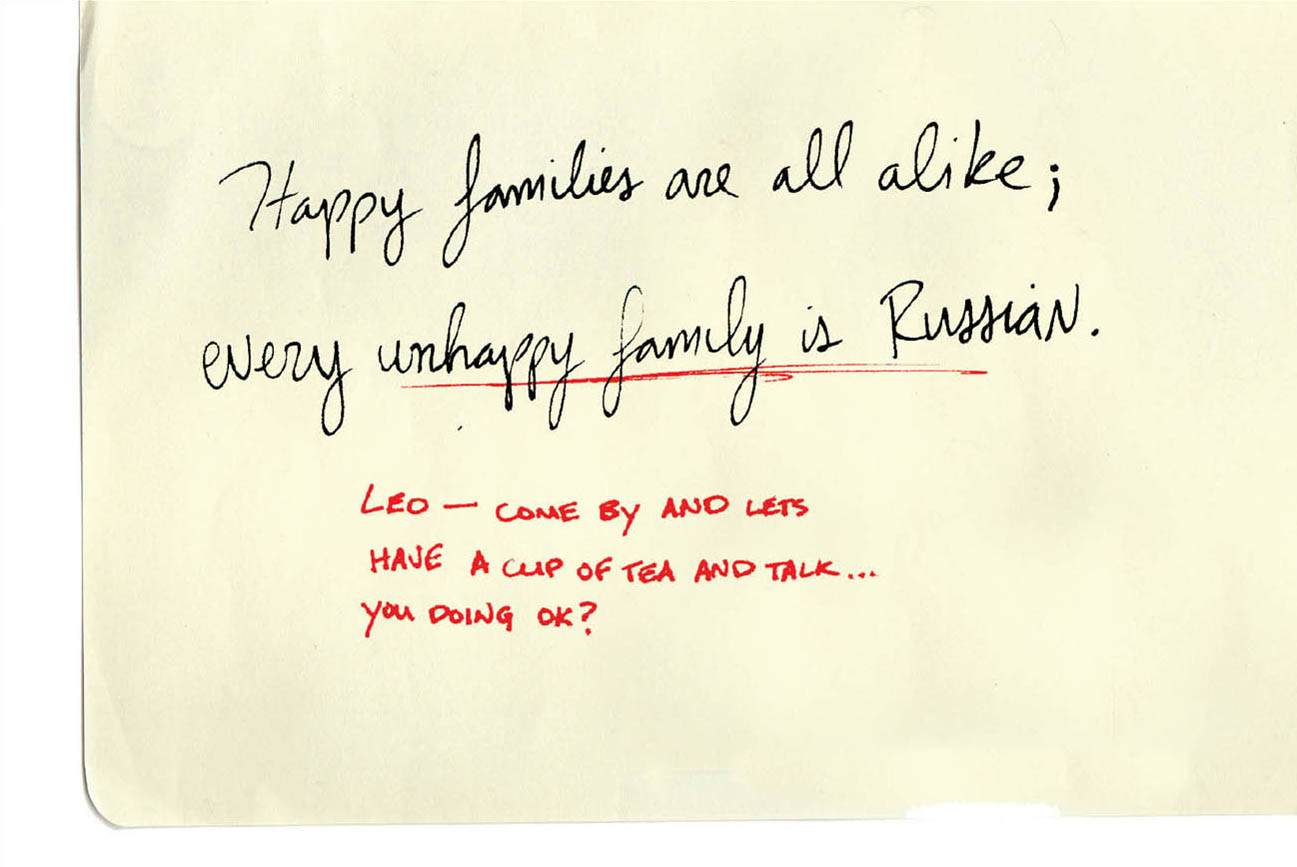 Happy families are all alike;
every unhappy family is Russian.
LEO — COME BY AND LETS
HAVE A CUP OF TEA AND TALK...
YOU DOING OK?